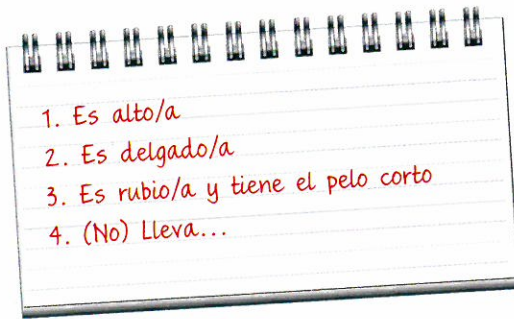 1. Es alto/a
2. Es delgado/a
3. Es rubio/a y tiene el pelo corto
4. (No) Lleva...